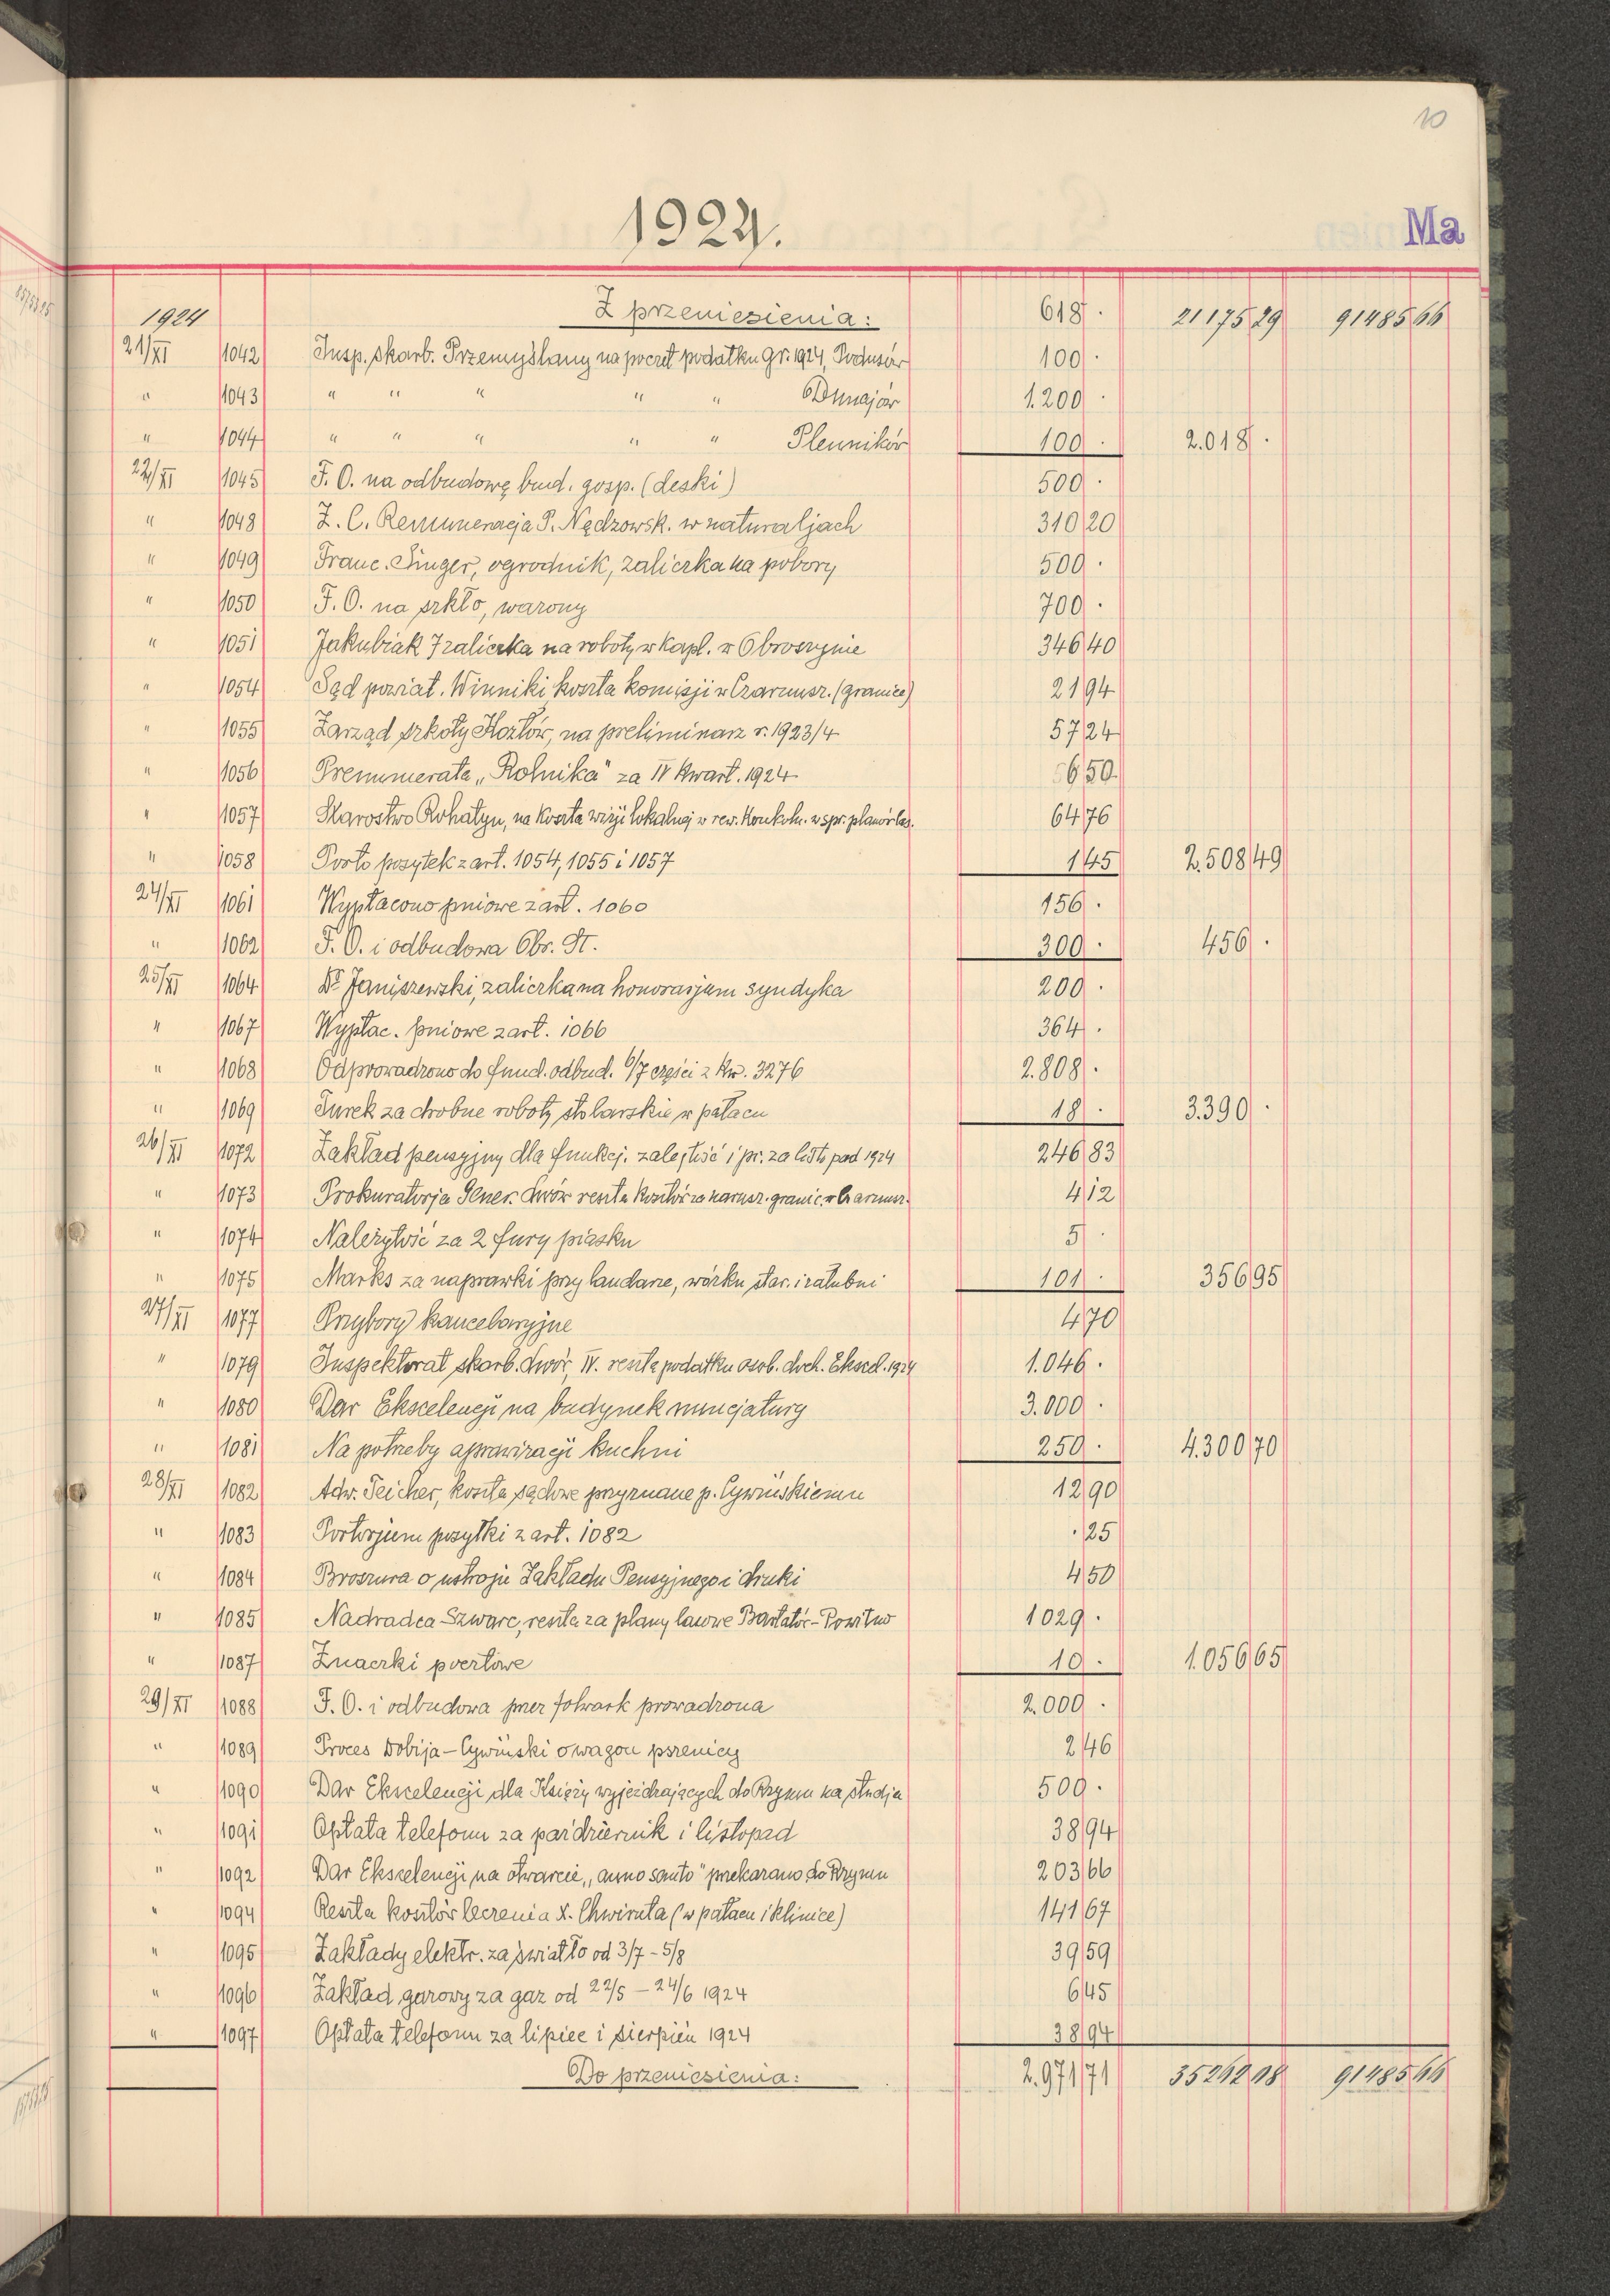 10
1924.
Ma
1924 Z przeniesienia: 618 . 21175 29 91485 66
21/XI 1042 Insp. skarb. Przemyślany na poczet podatku gr. 1924, Podusów 100 .
" 1043 " " " " " Dunajów 1.200 .
" 1044 " " " " " Plennikór 100 . 2.018 .
22/XI 1045 F. O. na odbudowę bud. gosp. (deski) 500 .
" 1048 Z. C. Remuneracja P. Nędzowsk. w naturaljach 310 20
" 1049 Franc. Singer, ogrodnik, zaliczka na pobory 500 .
" 1050 F. O. na szkło, wazony 700 .
" 1051 Jakubiak J zaliczka na roboty w kapl. w Obroszynie 346 40
" 1054 Sąd powiat. Winniki koszta komisji w Czarnusz. (granice) 21 94
" 1055 Zarząd szkoły Kozłów, na preliminarz r. 1923/4 57 24
" 1056 Prenumerata „Rolnika" za IV kwart. 1924 6 50
" 1057 Starostwo Rohatyn, na koszta wizji lokalnej w rew. Konkoln. w spr. planów las. 64 76
" 1058 Porto posyłek z art. 1054, 1055 i 1057 1 45 2.508 49
24/XI 1061 Wypłacono pniowe z art. 1060 156 .
" 1062 F. O. i odbudowa Obr. St. 300 . 456 .
25/XI 1064 Dr Janiszewski, zaliczka na honorarjum syndyka 200 .
" 1067 Wypłac. pniowe z art. 1066 364 .
" 1068 Odprowadzono do fund. odbud. 6/7 części z kw. 3276 2.808 .
" 1069 Turek za drobne roboty stolarskie w pałacu 18 . 3.390 .
26/XI 1072 Zakład pensyjny dla funkcj. zaległość i pr. za listopad 1924 246 83
" 1073 Prokuratorja Gener. Lwów reszta kosztów za narusz. granic w Czarnusz. 4 12
" 1074 Należytość za 2 fury piasku 5 .
" 1075 Marks za naprawki przy landarze, wózku stac. i załubni 101 . 356 95
27/XI 1077 Przybory kancelaryjne 4 70
" 1079 Inspektorat skarb. Lwów, IV. reszta podatku osob. doch. Ekscel. 1924 1.046 .
" 1080 Dar Ekscelencji na budynek nuncjatury 3.000 .
" 1081 Na potrzeby aprowizacji kuchni 250 . 4.300 70
28/XI 1082 Adw. Teicher, koszta sądowe przyznane p. Cywińskiemu 12 90
" 1083 Portorjum posyłki z art. 1082 . 25
" 1084 Broszura o ustroju Zakładu Pensyjnego i druki 4 50
" 1085 Nadradca Szwarc, reszta za plany lasowe Bartatów - 1029 .
" 1087 Znaczki pocztowe 10 . 1.056 65
29/XI 1088 F. O. i odbudowa przez folwark prowadzona 2.000 .
" 1089 Proces Dobija - Cywiński o wagon pszenicy 2 46
" 1090 Dar Ekscelencji dla Księży wyjeżdzających do Rzymu na studja 500 .
" 1091 Opłata telefonu za październik i listopad 38 94
" 1092 Dar Ekscelencji na otwarcie „anno santo" przekazano do Rzymu 203 66
" 1094 Reszta kosztów leczenia X. Chwiruta (w pałacu i klinice) 141 67
" 1095 Zakłady elektr. za światło od 3/7 - 5/8 39 59
" 1096 Zakład gazowy za gaz od 22/5 - 24/6 1924 6 45
" 1097 Opłata telefonu za lipiec i sierpień 1924 38 94
Do przeniesienia: 2.971 71 35262 08 91485 66